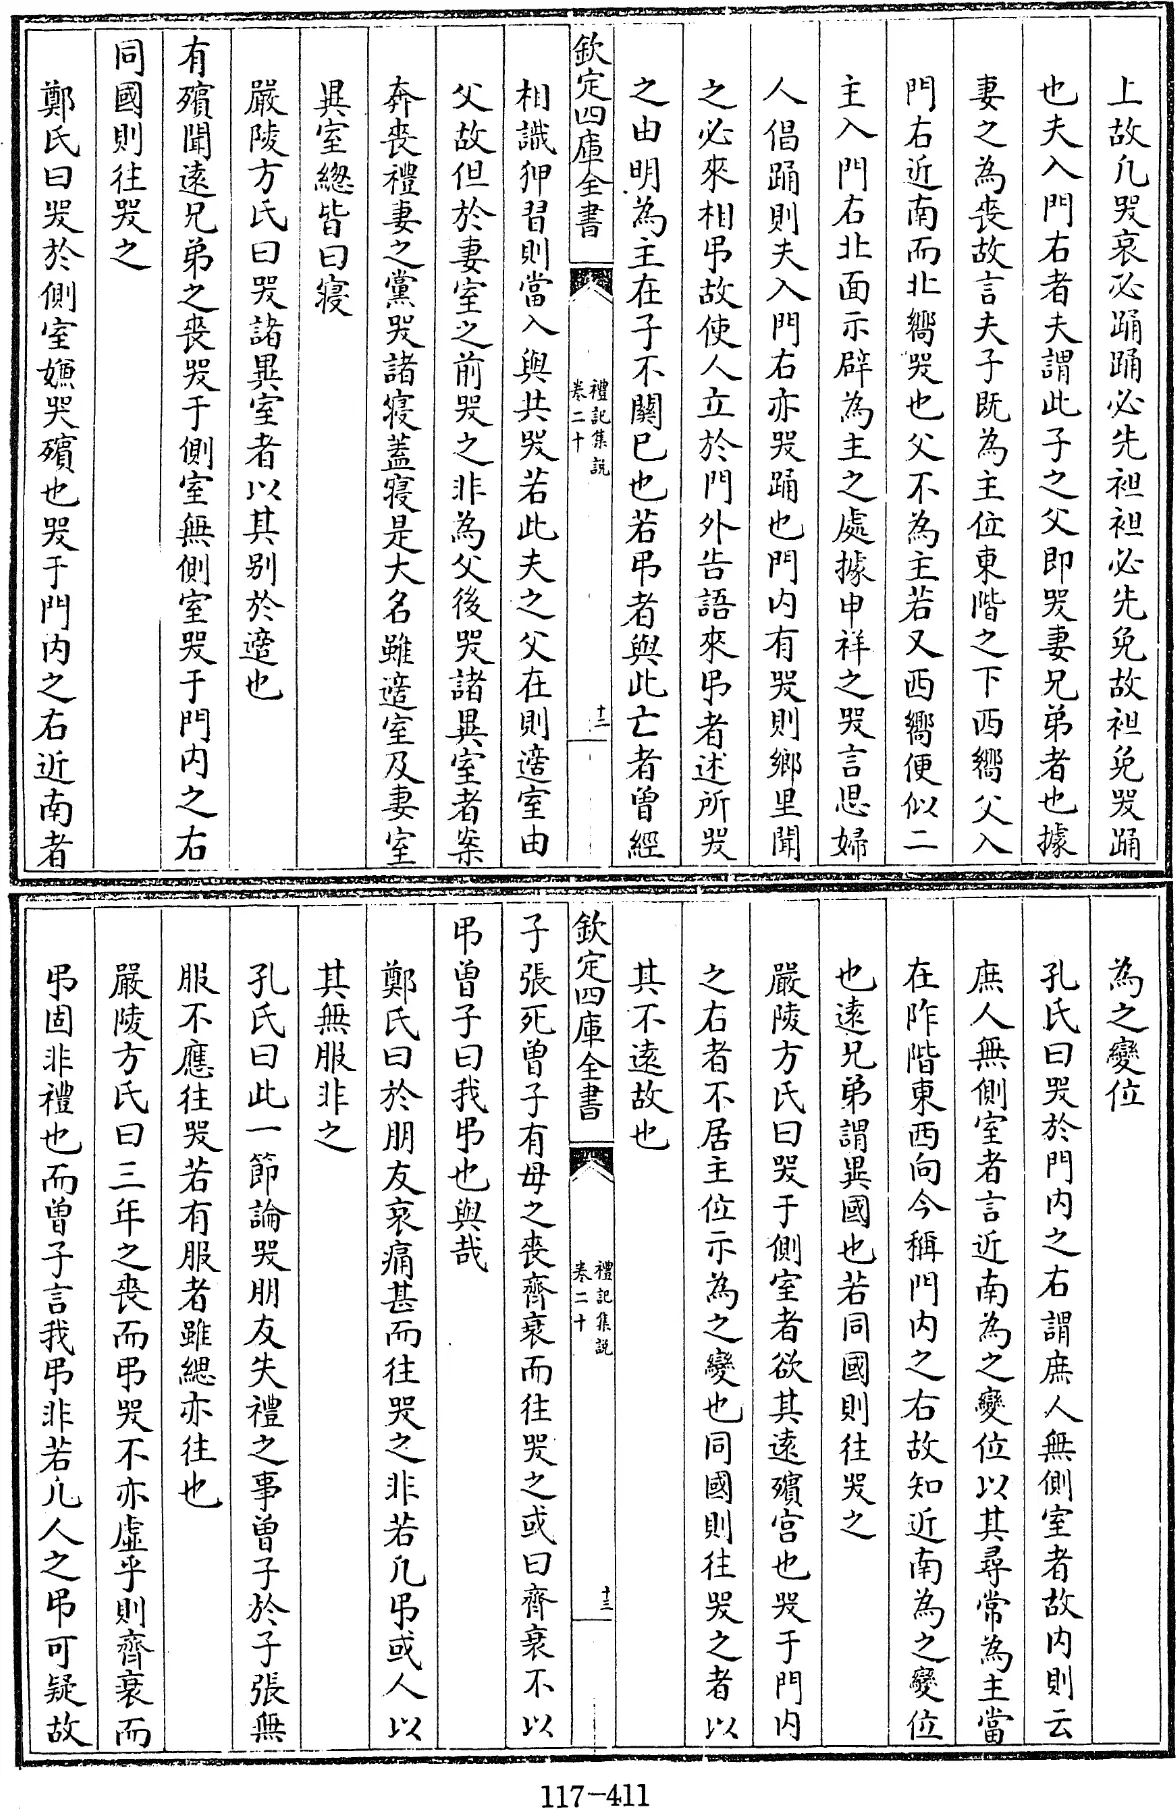 上故凡哭哀必踊踊必先袒袒必先免故袒免哭踊
也夫入門右者夫謂此子之父即哭妻兄弟者也據
妻之為喪故言夫子既為主位東階之下西嚮父入
門右近南而北嚮哭也父不為主若又西嚮便似二
主入門右北面示辟為主之處據申祥之哭言思婦
人倡踊則夫入門右亦哭踊也門内有哭則鄉里聞
之必來相弔故使人立於門外告語來弔者述所哭
之由明為主在子不關已也若弔者與此亡者曾經
欽定四庫全書
禮記集説
卷二十
十二
相識狎習則當入與共哭若此夫之父在則適室由
父故但於妻室之前哭之非為父後哭諸異室者案
奔喪禮妻之黨哭諸寢蓋寢是大名雖適室及妻室
異室總皆曰寢
嚴陵方氏曰哭諸異室者以其别於適也
有殯聞遠兄弟之喪哭于側室無側室哭于門内之右
同國則往哭之
鄭氏曰哭於側室嫌哭殯也哭于門内之右近南者
為之變位
孔氏曰哭於門内之右謂庶人無側室者故内則云
庶人無側室者言近南為之變位以其尋常為主當
在阼階東西向今稱門内之右故知近南為之變位
也逺兄弟謂異國也若同國則往哭之
嚴陵方氏曰哭于側室者欲其逺殯宫也哭于門内
之右者不居主位示為之變也同國則往哭之者以
其不遠故也
欽定四庫全書
禮記集説
卷二十
十三
子張死曾子有母之喪齊衰而往哭之或曰齊衰不以
弔曾子曰我弔也與哉
鄭氏曰於朋友哀痛甚而往哭之非若凡弔或人以
其無服非之
孔氏曰此一節論哭朋友失禮之事曾子於子張無
服不應往哭若有服者雖緦亦往也
嚴陵方氏曰三年之喪而弔哭不亦虚乎則齊衰而
弔固非禮也而曾子言我弔非若凡人之弔可疑故
117-411